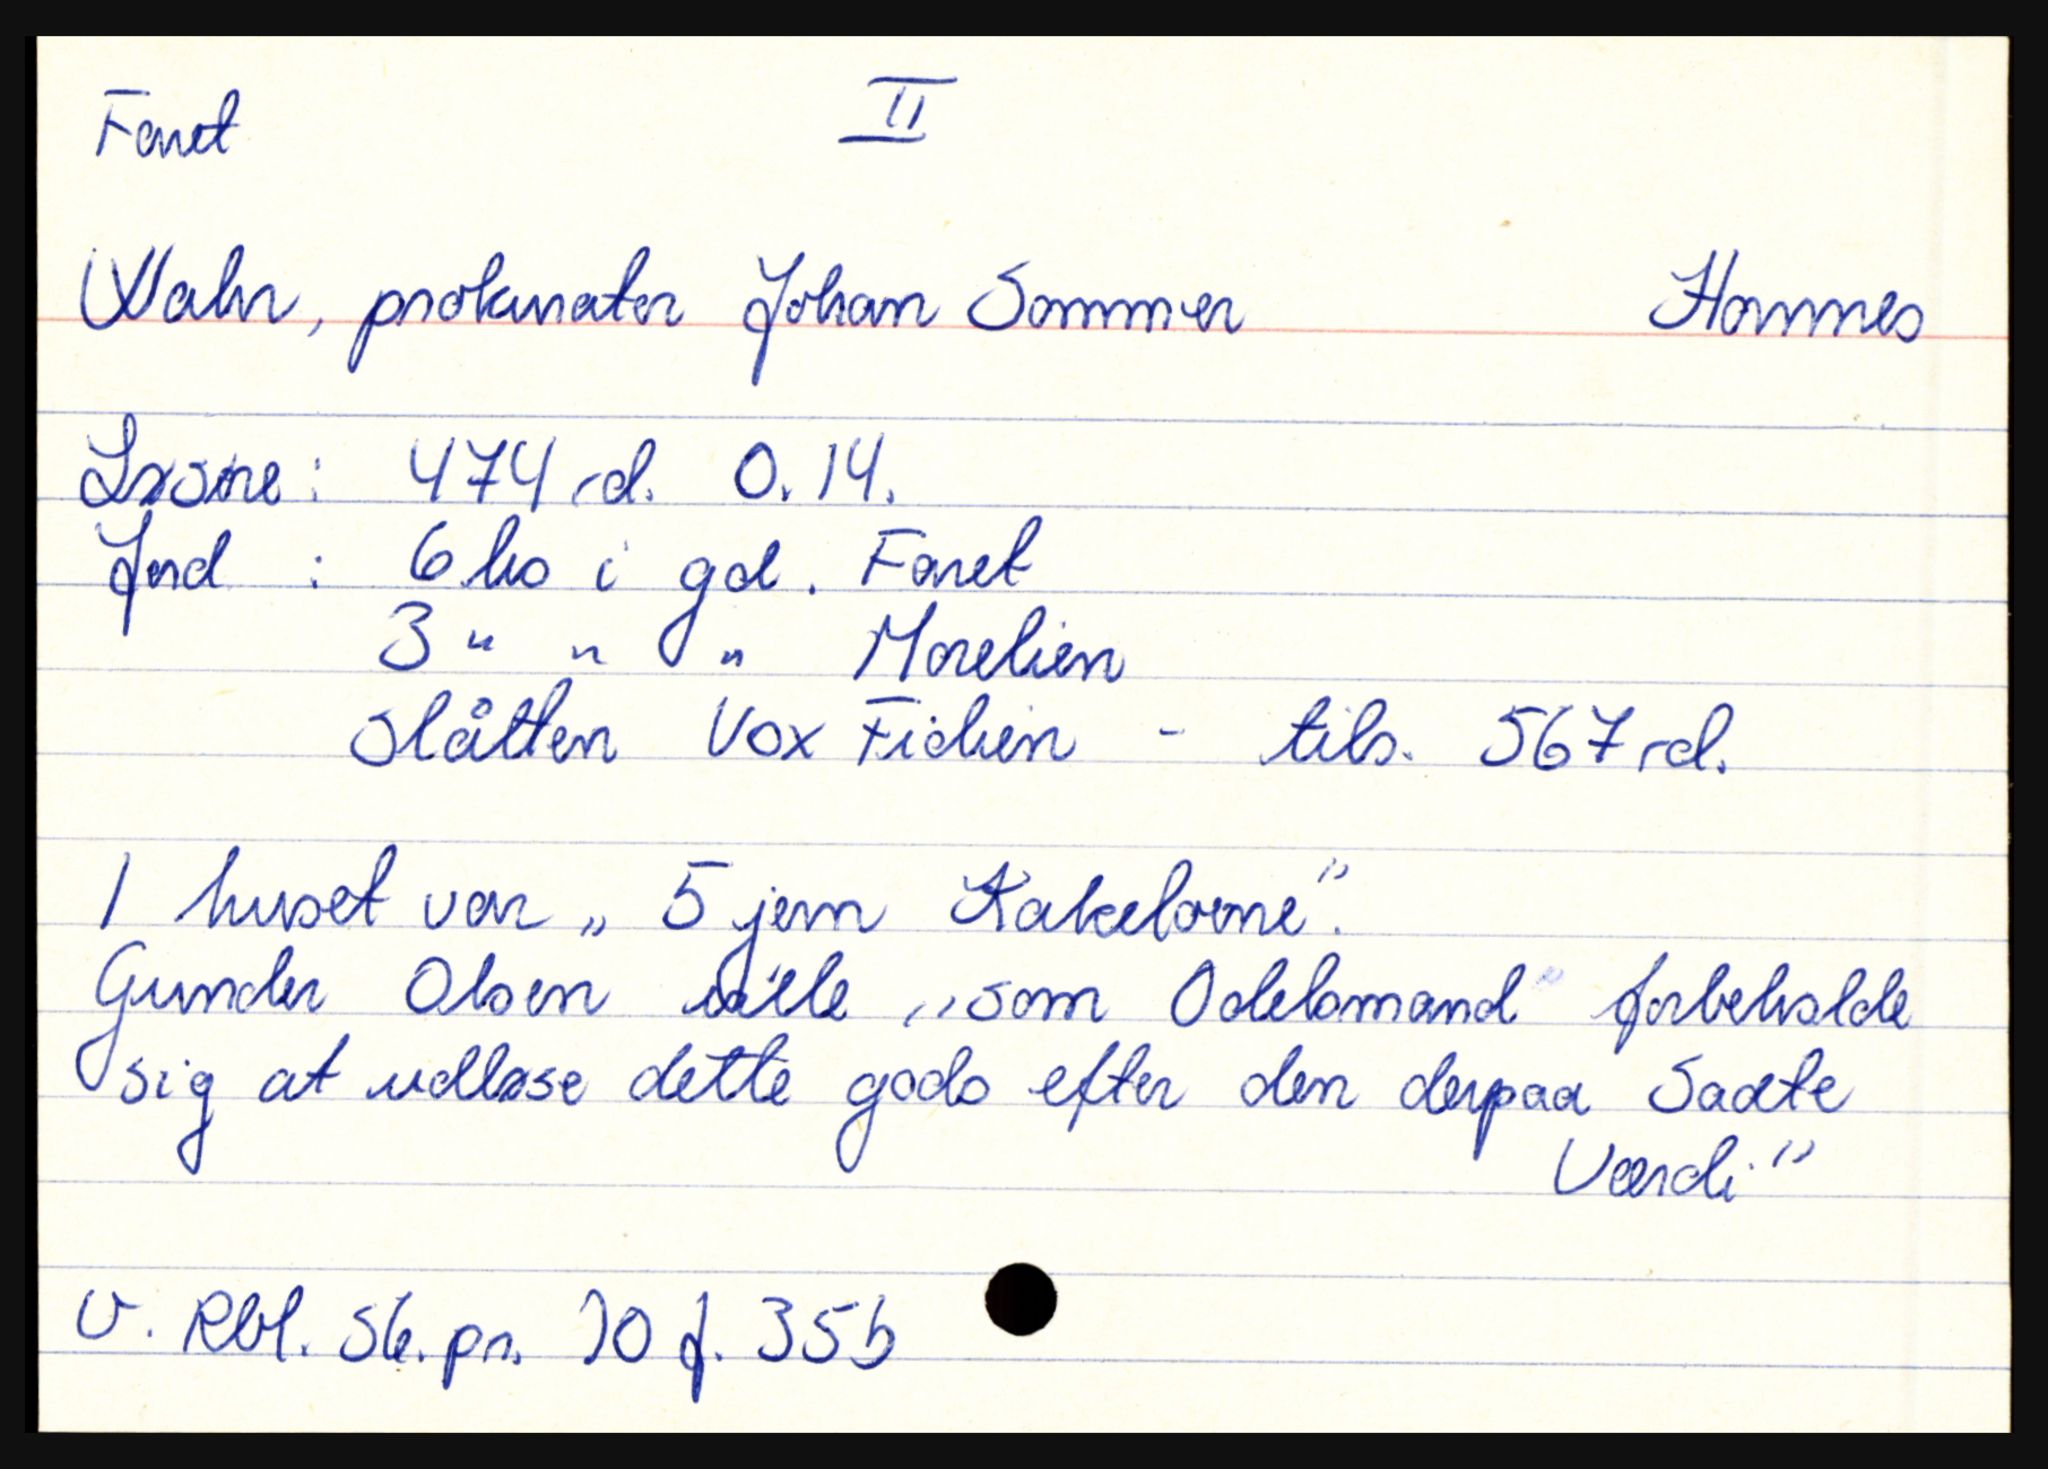 Faret II
Walør, prokurator Johan Sommer Homnes
Løsøre: 474 rd. 0.14.
Jord : 6 hs i gd. Faret
3 " " " Morelien
Slåtten Vox Fichien - tils. 567 rd.
I huset var „ 5 jern Kakelovne".
Gunder Olsen vilde „som Odelsmand" forbeholde
sig at udløse dette gods efter den derpaa Sadte
Værdi"
V. Rbl. Sk.pr. 10 f. 35b